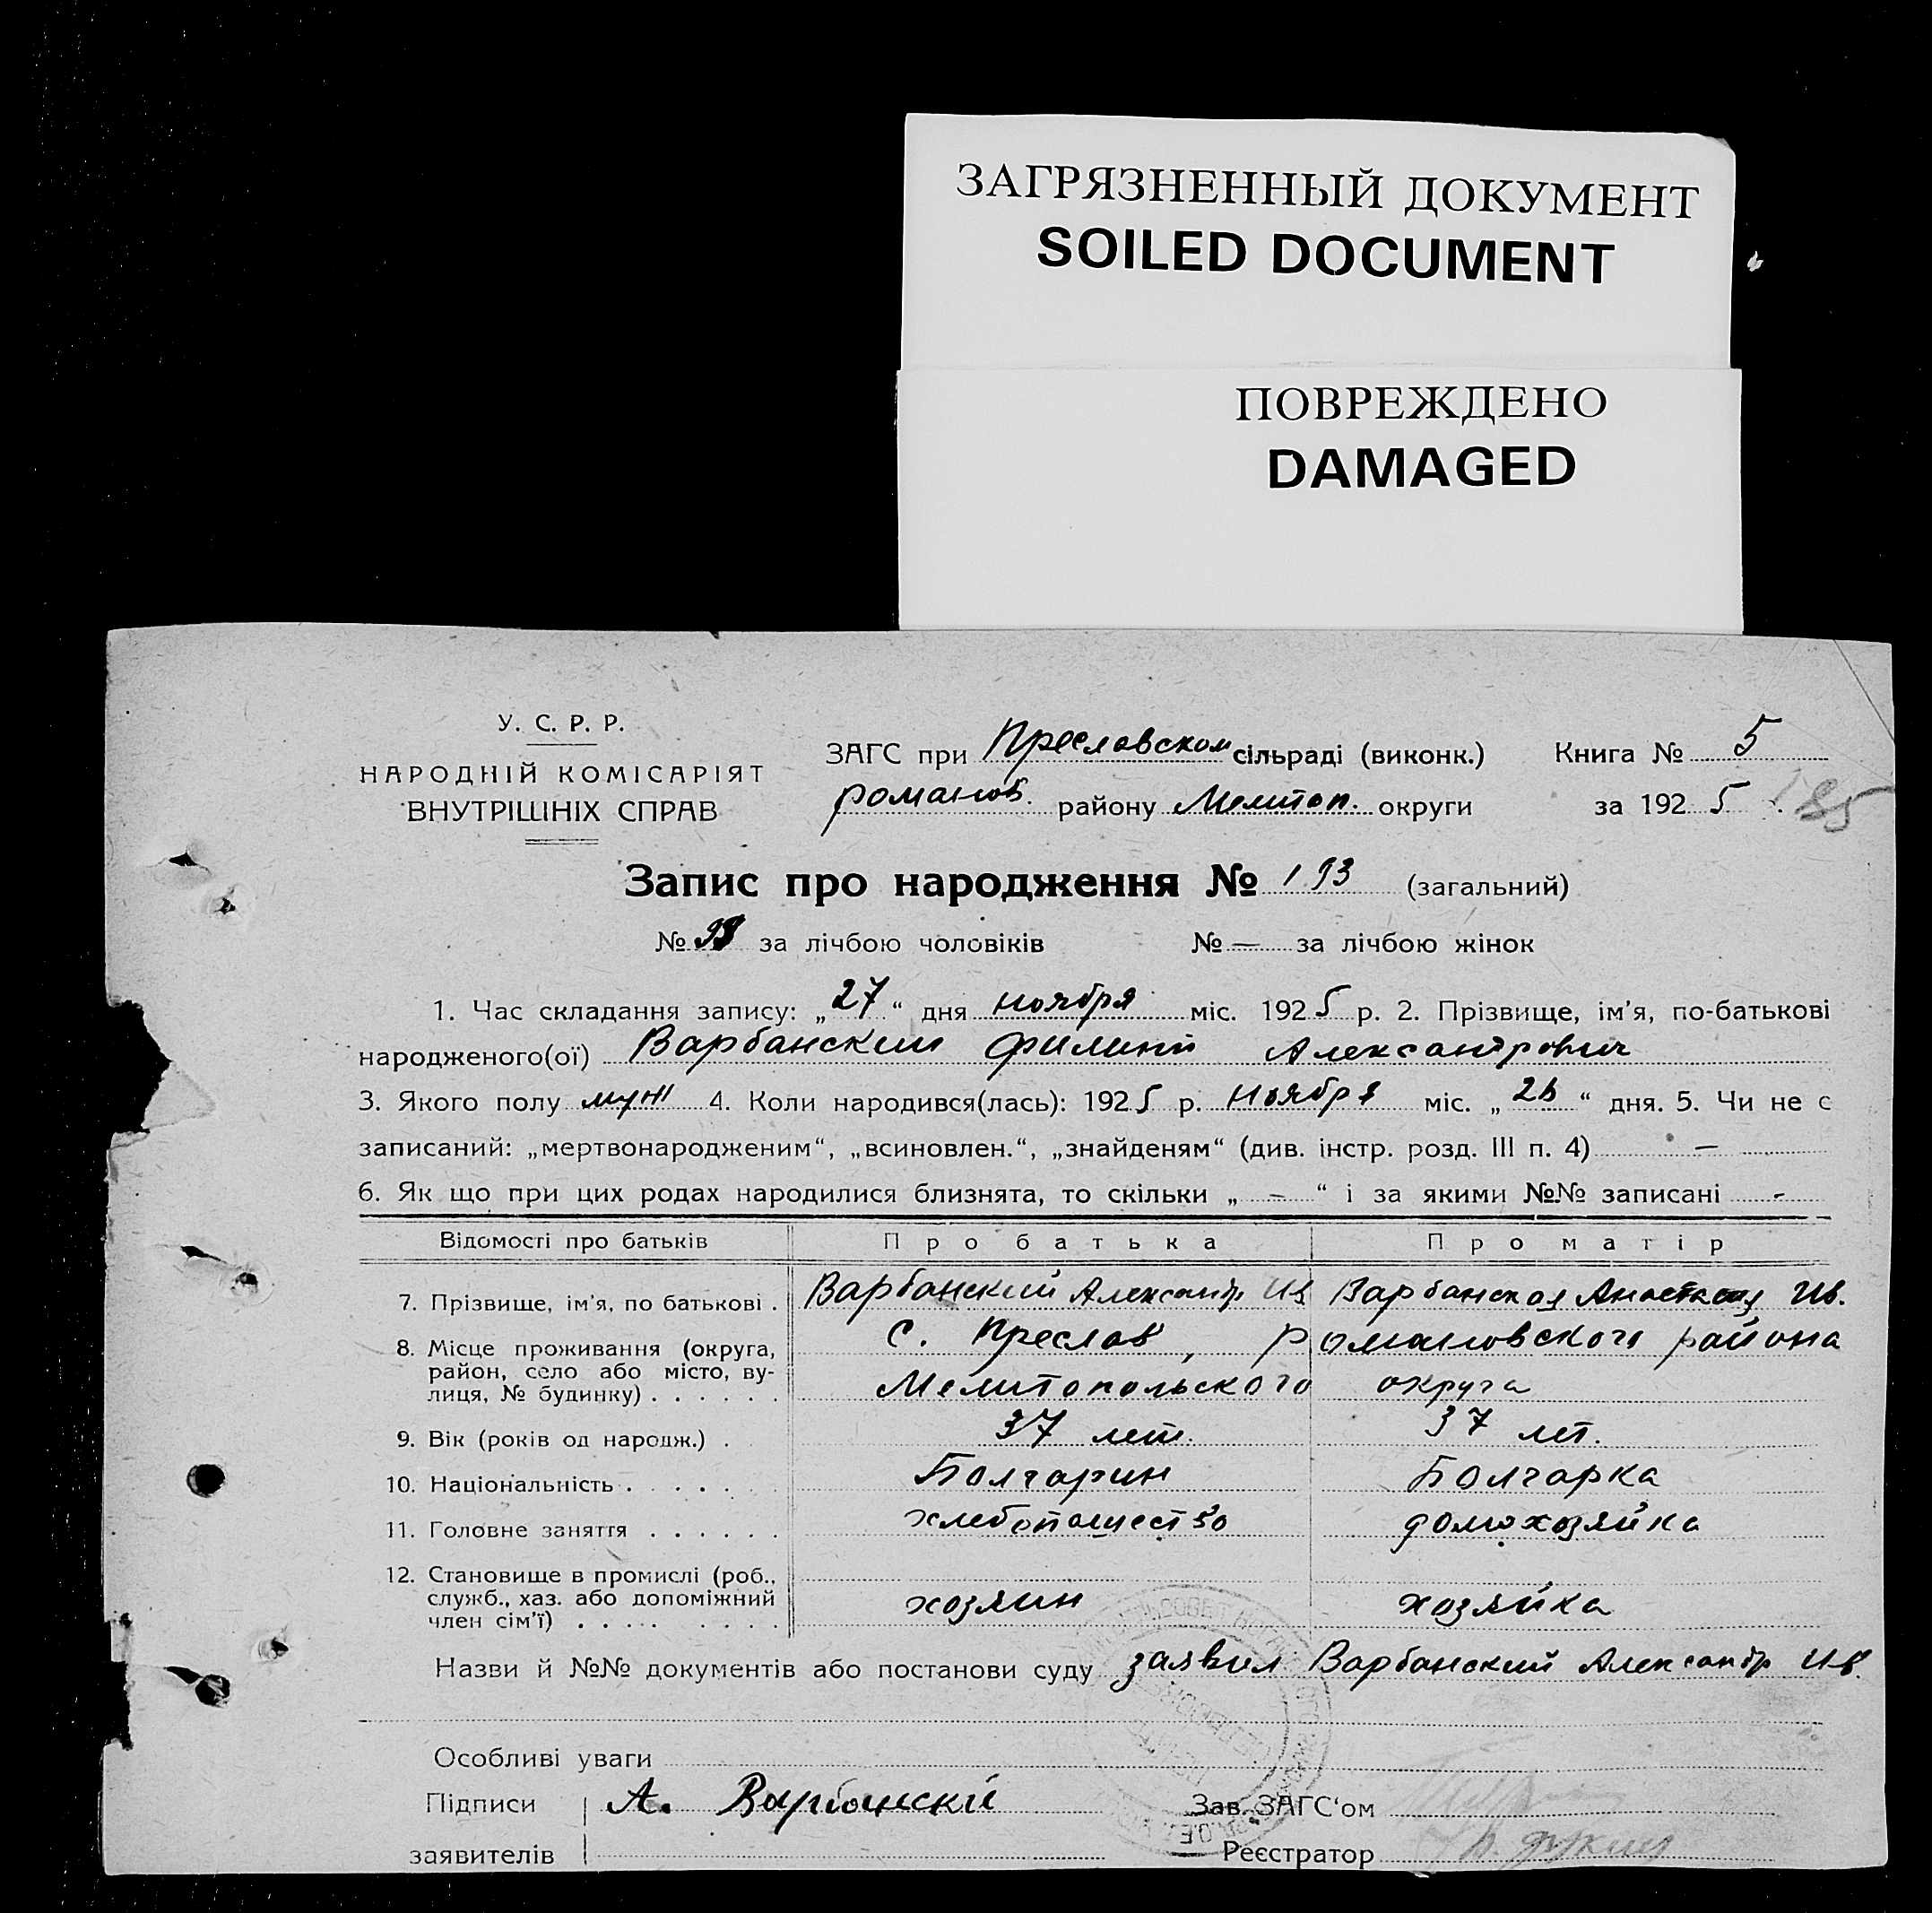 ЗАГРЯЗНЕННЫЙ ДОКУМЕНТ
SOILED DOCUMENT
ПОВРЕЖДЕНО
DAMAGED
У. С. Р. Р.
НАРОДНІЙ КОМІСАРІЯТ
ВНУТРІШНІХ СПРАВ
ЗАГС при Преславском сільраді (виконк.) Книга № 5
романов. району Мелитоп. округи за 1925
Запис про народження № 193 (загальний)
№ 98 за лічбою чоловіків № — за лічбою жінок
1. Час складання запису: „27“ дня ноября міс. 1925 р. 2. Прізвище, ім’я, по-батькові
народженого(ої) Варбанский Филипп Александрович
3. Якого полу муж 4. Коли народився(лась): 1925 р. Ноября міс. „26“ дня. 5. Чи не є
записаний: „мертвонародженим“, „всиновлен.“, „знайденям“ (див. інстр. розд. III п. 4) —
6. Як що при цих родах народилися близнята, то скільки „ - “ і за якими №№ записані -
Відомості про батьків Про батька Про матір
7. Прізвище, ім’я, по батькові . Варбанский Александр Ив Варбанская Анастасия Ив.
8. Місце проживання (округа, с. Преслав, Романовского района
район, село або місто, ву-
лиця, № будинку) . . . . . . Мелитопольского округа
9. Вік (років од народж.) . 37 лет. 37 лет.
10. Національність . . . . . . Болгарин Болгарка
11. Головне заняття . . . . . . хлебопашество домохозяйка
12. Становище в промислі (роб.,
служб., хаз. або допоміжний хозяин хозяйка
член сім’ї) . . . . . . . .
Назви й №№ документів або постанови суду заявил Варбанский Александр Ив.
Особливі уваги
Підписи А. Варбански Зав. ЗАГС‘ом
заявителів Реєстратор